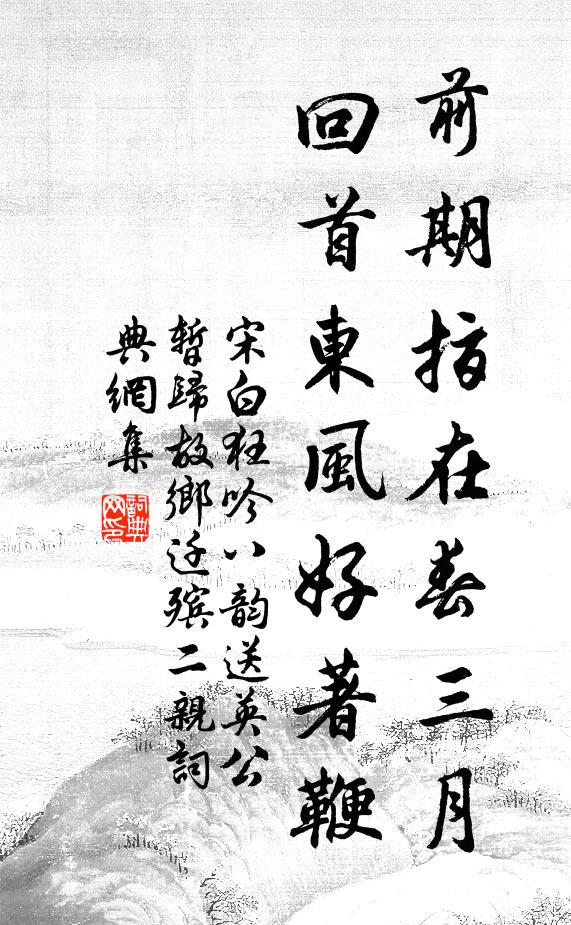 前期指在春三月
回首東風好著鞭
宋白狂吟八韵送英公
暫歸故鄉迁殡二親詞
典網集
詞典
网印